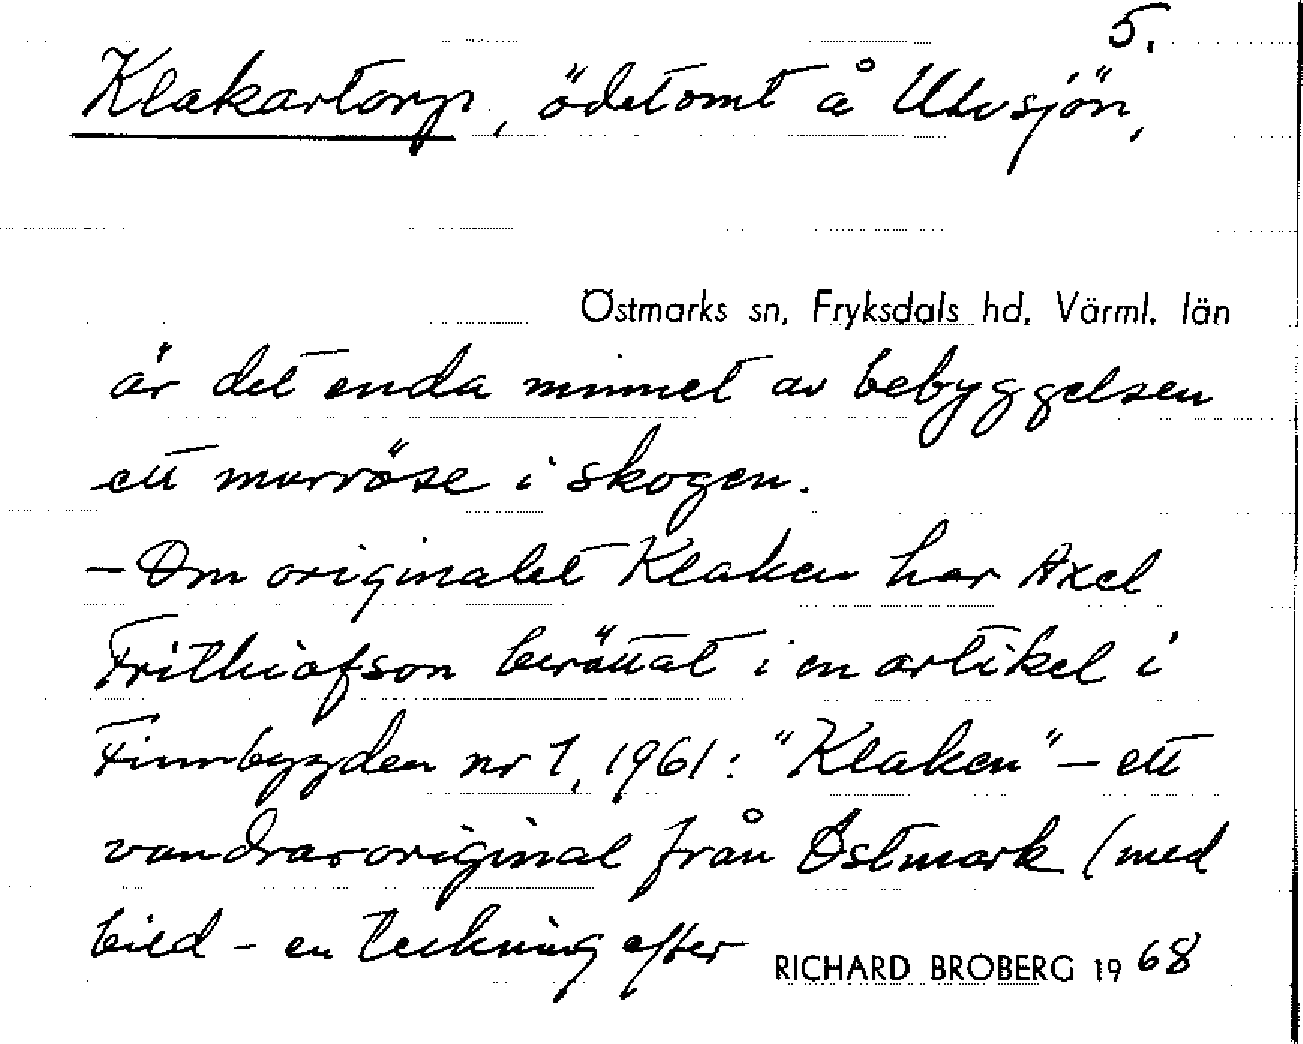 5.
Klakartorp, ödetomt å Utvsjön,
Östmarks sn, Fryksdals hd, Värml. län
är det enda minnet av bebyggelsen
ett murröse i skogen.
- Om originalet Klaken har Axel
Frithiofson berättat i en artikel i
Finnbygden nr 1, 1961: "Klaken" - ett
vandraroriginal från Östmark (med
bild - en teckning efter
RICHARD BROBERG 1968